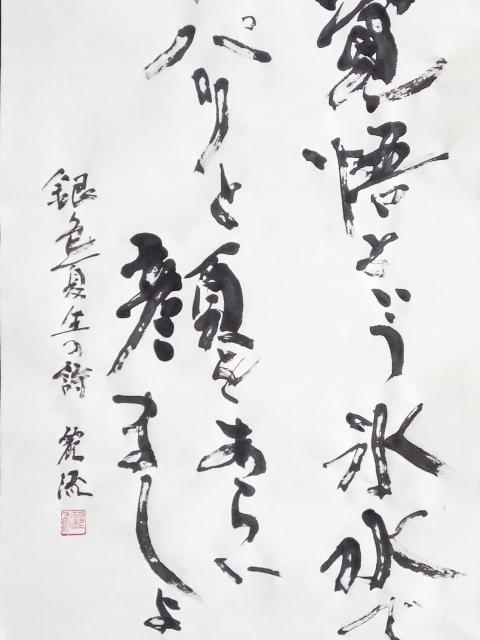 覚悟という氷水で
パリと顔をあらい
ましょ
銀色夏生の詩